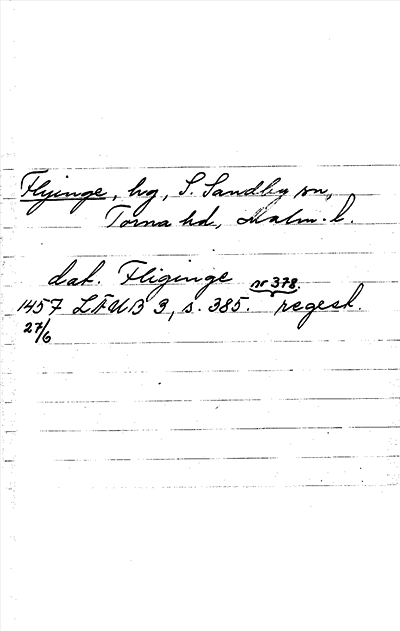 Flyinge, hg, S. Sandby sn,
Torna hd, Malm. l.
dat. Fliginge nr 378.
1457 LÄUB 3, s. 385. regest.
27/6